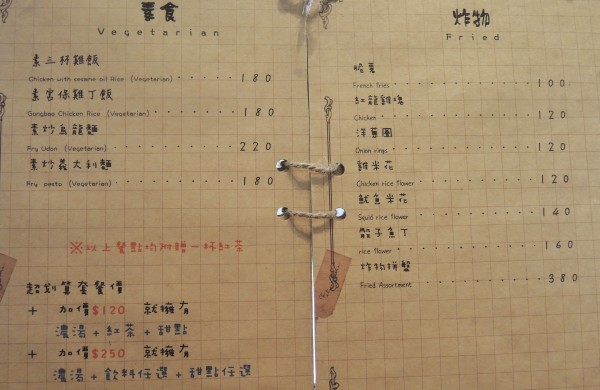 素食
Vegetarian
素三杯雞飯
Chicken with sesame oil Rice (Vegetarian) 180
素宮保雞丁飯
Gongbao Chicken Rice (Vegetarian) 180
素炒烏龍麵
Fry Udon (Vegetarian) 220
素炒義大利麵
Fry pasta (Vegetarian) 180
※以上餐點均附贈一杯紅茶
超划算套餐價
+ 加價$120 就擁有
濃湯+紅茶+甜點
+ 加價$250 就擁有
濃湯+飲料任選+甜點任選
炸物
Fried
脆薯
French fries 100
紅龍雞塊
Chicken 120
洋蔥圈
Onion rings 120
雞米花
Chicken rice flower 120
魷魚米花
Squid rice flower 140
骰子魚丁
rice flower 160
炸物拼盤
Fried Assortment 380